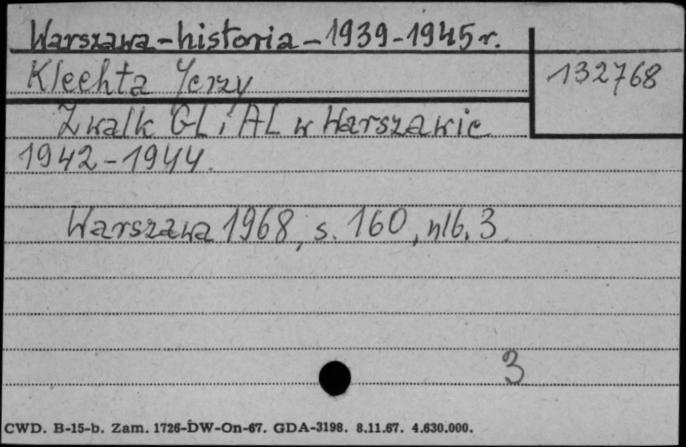 Warszawa - historia - 1939-1945 r.
Kleehta Jerzy
132768
Z walk GL i AL w Warszawie
1942-1944.
Warszawa 1968, s. 160, nlb. 3
3
CWD. B-15-b. Zam. 1726-DW-On-67. GDA-3198. 8.11.67. 4.630.000.